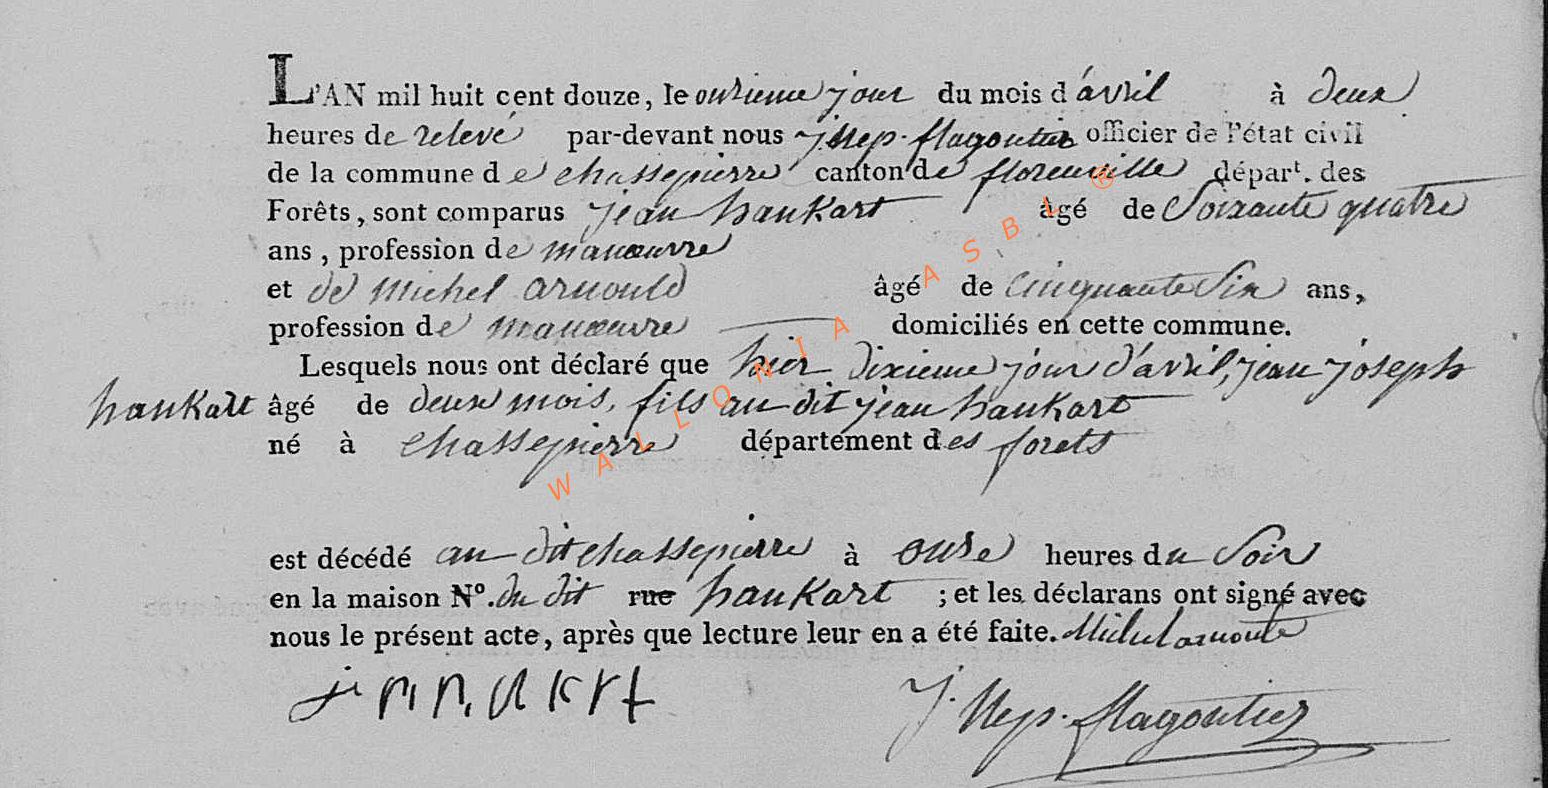 L'AN mil huit cent douze, le onzieme jour du mois d'avril à deux
heures de relevé par-devant nous j. Nep. flagontier officier de l'état civil
de la commune de chassepierre canton de florenville départ. des
Forêts, sont comparus jean hankart âgé de Soixante quatre
ans, profession de manœuvre
et de michel arnould âgé de cinquante Six ans,
profession de manœuvre domiciliés en cette commune.
Lesquels nous ont déclaré que hier dixieme jour d'avril, jean joseph
hankart âgé de deux mois, fils au dit jean hankart
né à chassepierre département des forets
est décédé au dit chassepierre à onze heures du Soir
en la maison N°. du dit rue hankart ; et les déclarans ont signé avec
nous le présent acte, après que lecture leur en a été faite. Michel arnould
J. Nep. flagontier
WALLONIA ASBL ®